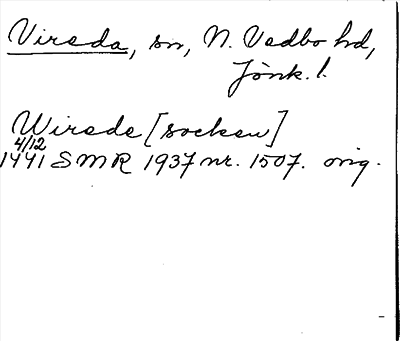 Vireda, sn, N. Vedbo hd,
Jönk. l.
Wirede [socken]
4/12
1441 SMR 1937 nr. 1507. orig.